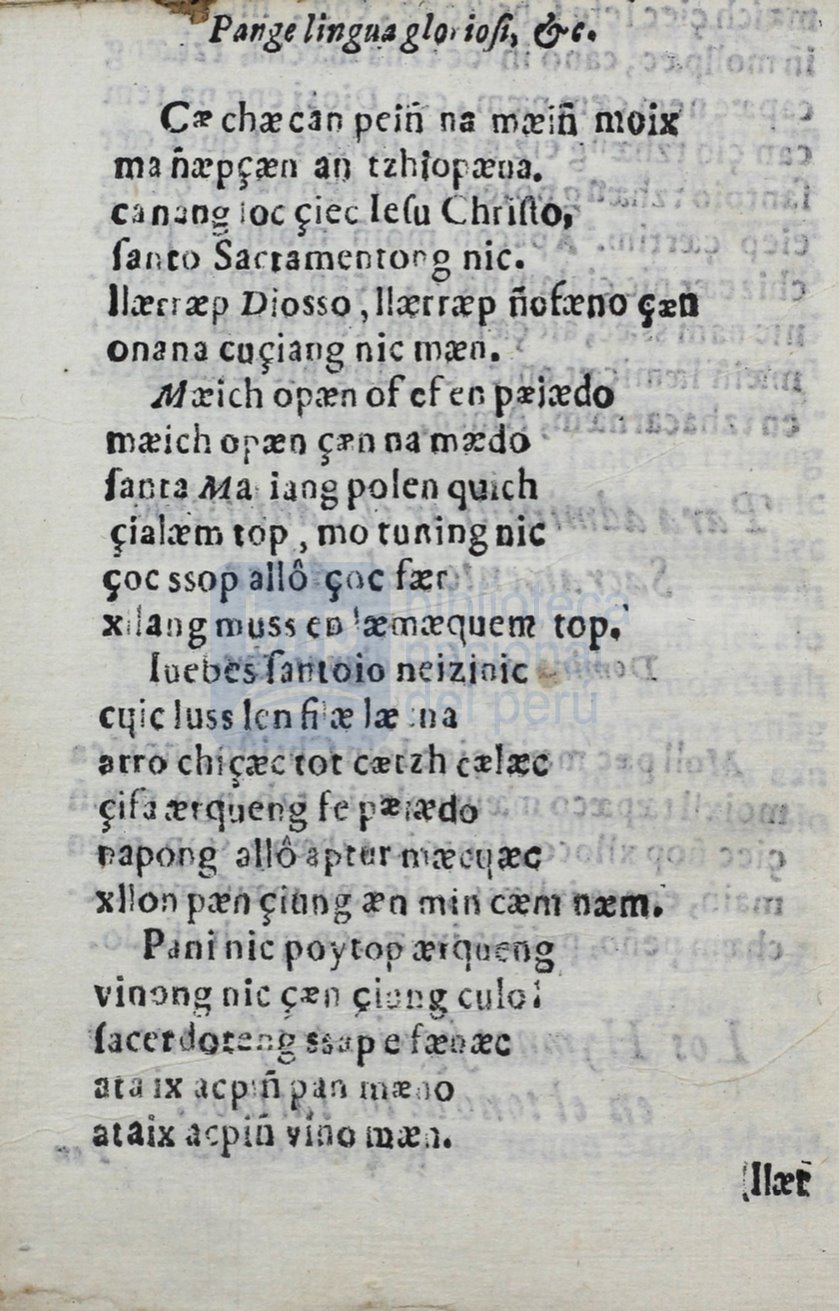 Pange lingua gloriosi, &c.
Cæ chæcan peiñ na mæiñ moix
ma ñæpçæn an tzhiopæna.
canang ioc çiec Iesu Christo,
santo Sacramentong nic.
llærræp Diosso, llærræp ñofæno çæn
onana cuçiang nic mæn.
Mæich opæn of efen pæiædo
mæich opæn çæn na mædo
santa Ma iang polen quich
çialæm top, mo tuning nic
çoc ssop allô çoc fær
xllang muss en læmæquem top.
Iuebes santoio neizinic
cɥic luss len læ na
atro chiçæc tot cætzh cælæc
çifa ærqueng fe pæiædo
napong allô aptur mæcɥæc
xllon pæn çiung æn min cæm næm.
Pani nic poytop ærqueng
vinong nic çæn çiung culo
sacerdoteng ssap e fænæc
ataix acpiñ pan mæno
ataix acpiñ vino mæn.
llær
biblioteca
nacional
del perú